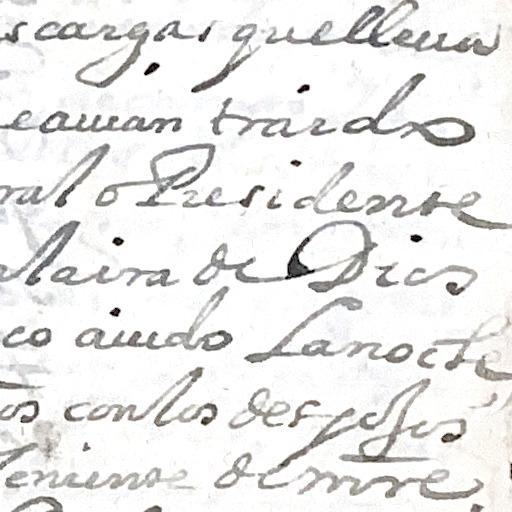 s cargas quelleua
eauian traido
ral o Presidente
la ira de Dios
co aiudo Lanoche
os con los despojos
Teniente de mre